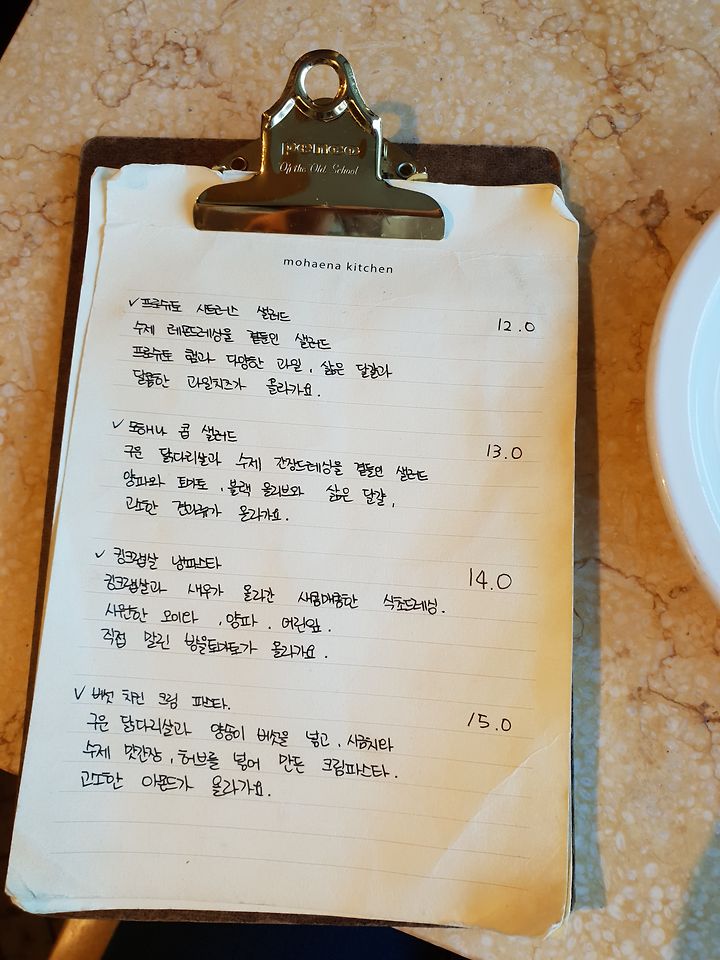 penco
Off the Old School
mohaena kitchen
✓프로슈토 시트러스 샐러드
12.0
수제 레몬드레싱을 곁들인 샐러드
프로슈토 햄과 다양한 과일, 삶은 달걀과
달콤한 과일치즈가 올라가요.
✓모해나 콥 샐러드
13.0
구운 닭다리살과 수제 간장드레싱을 곁들인 샐러드
양파와 토마토, 블랙 올리브와 삶은 달걀,
고소한 견과류가 올라가요.
✓킹크랩살 냉파스타
14.0
킹크랩살과 새우가 올라간 새콤매콤한 식초드레싱.
시원한 오이와, 양파. 어린잎.
직접 말린 방울토마토가 올라가요.
✓버섯 치킨 크림 파스타.
15.0
구운 닭다리살과 양송이 버섯을 넣고, 시금치와
수제 맛간장, 허브를 넣어 만든 크림파스타.
고소한 아몬드가 올라가요.